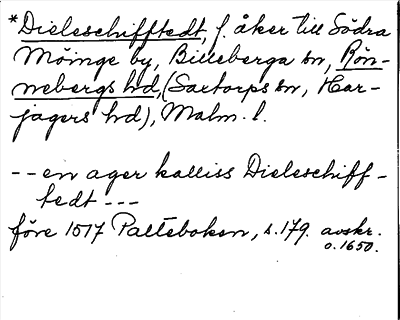 *Dieleschifftedt, f. åker till Södra
Möinge by, Billeberga sn, Rön-
nebergs hd, (Saxtorps sn, Har-
jagers hd), Malm. l.
-- en ager kalliss Dieleschiff-
tedt ---
före 1517 Palteboken, s. 179. avskr.
o. 1650.